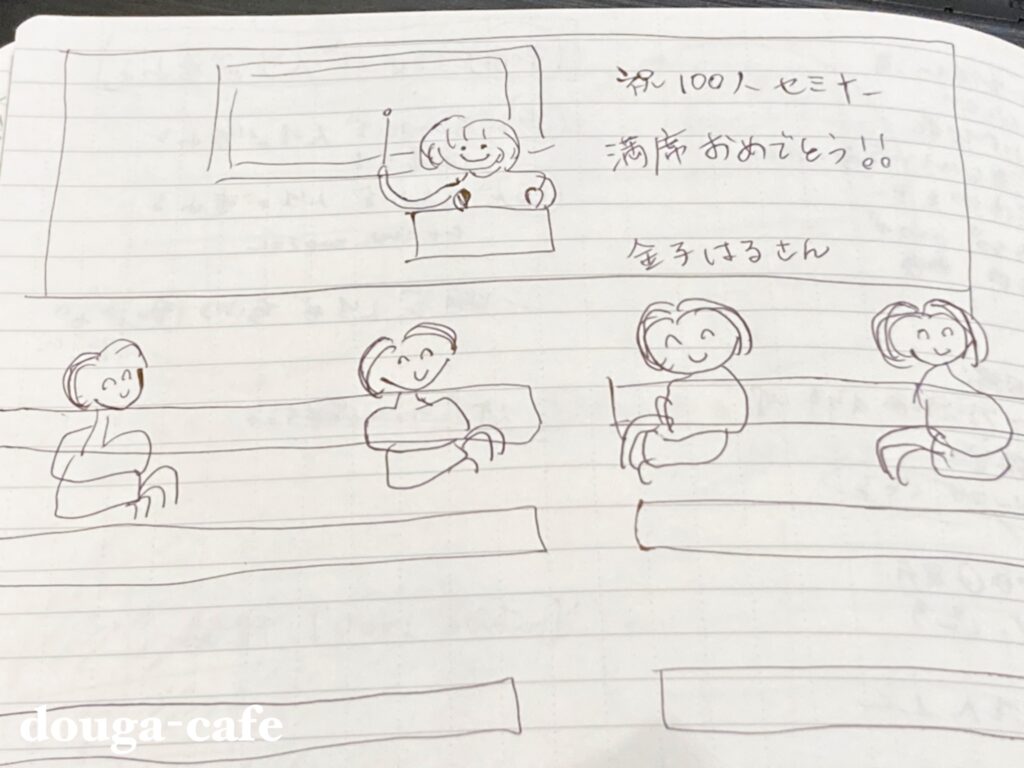 祝100人セミナー
満席おめでとう!!
金子はるさん
douga-cafe